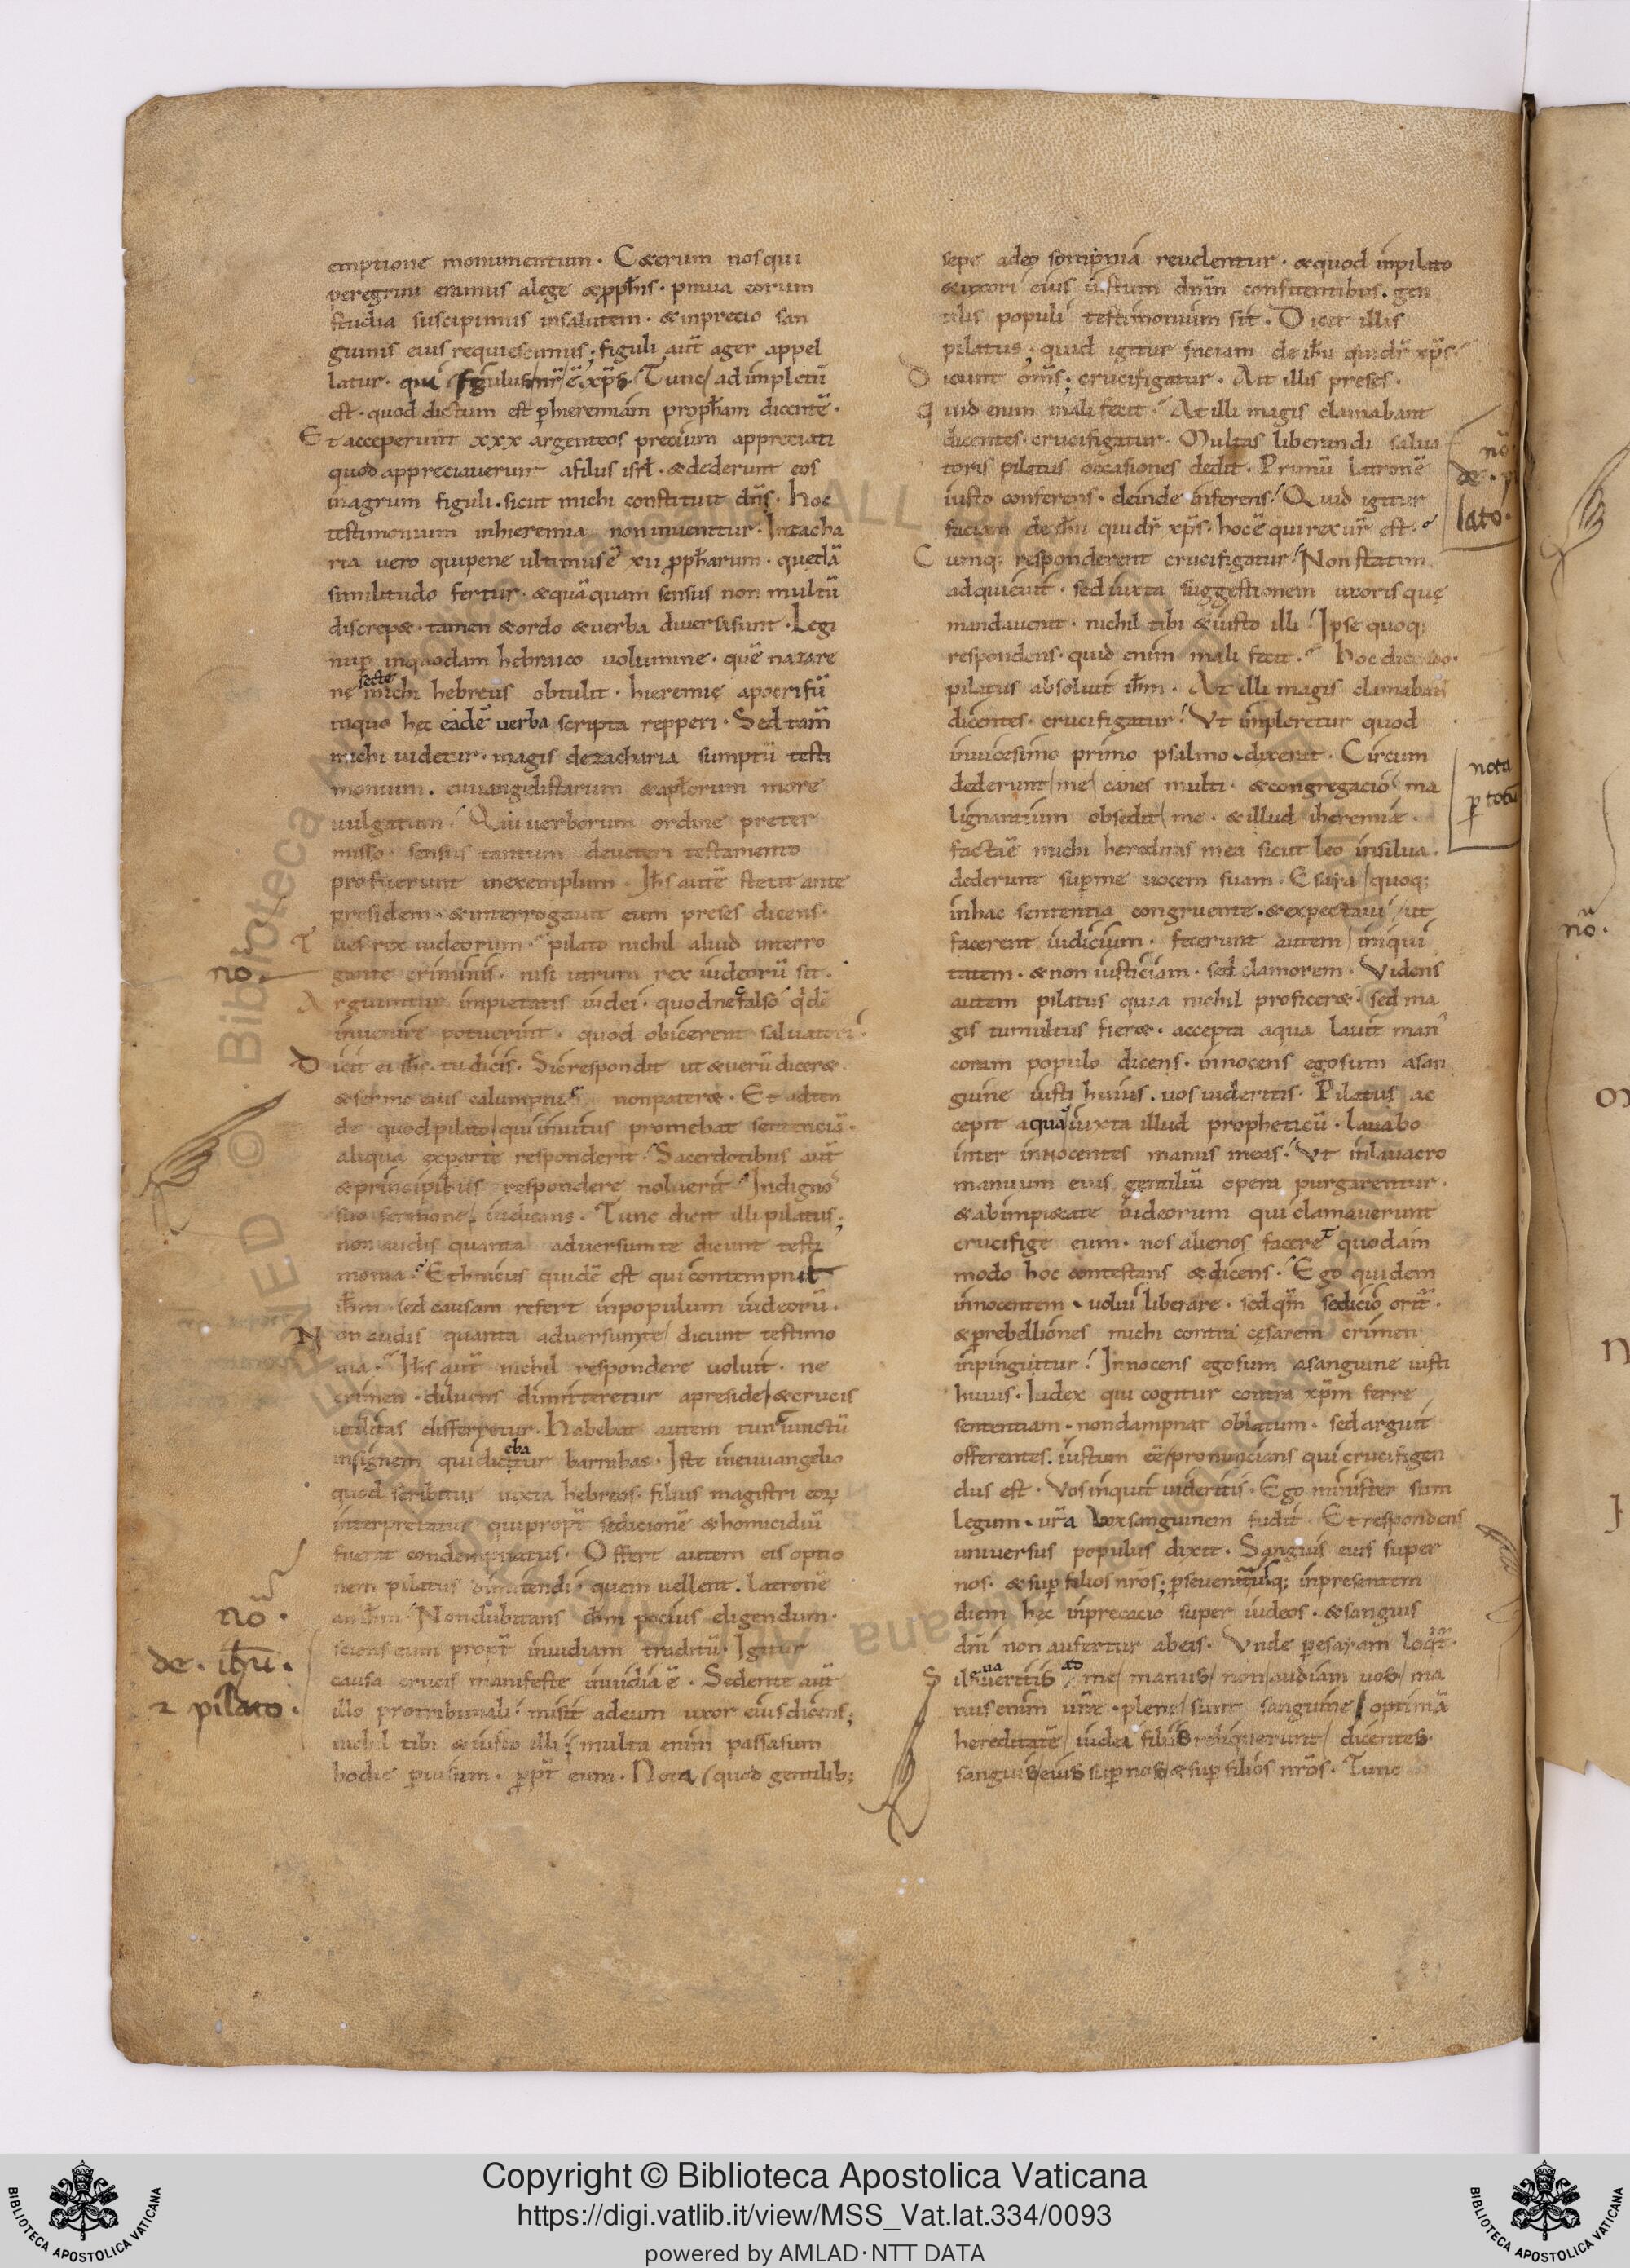 emptione monumentum. Cæterum nos qui
peregrini eramus a lege & pph̄is. praua eorum
studia suscipimus in salutem. & in precio san
guinis eius requiescimus; figuli aut̄ ager appel
latur. qui figulus nr̄ ē xp̄s. Tunc adimpletū
est. quod dictum est p hieremiam proph̄am dicentē.
Et acceperunt xxx argenteos precium appreciati
quod appreciauerunt a filiis isrl̄. & dederunt eos
in agrum figuli. sicut michi constituit dn̄s. Hoc
testimonium in hieremia non inuenitur. In zacha
ria uero qui pene ultimus ē xii pph̄arum. quedā
similitudo fertur. & quāquam sensus non multū
discrepæ. tamen & ordo & uerba diuersa sunt. Legi
nup in quodam hebraico uolumine. quē nazare
nę secte michi hebreus obtulit. hieremię apocrifū
in quo hęc eadē uerba scripta repperi. Sed tam̄
michi uidetur. magis de zacharia sumptū testi
monium. euuangelistarum & apl̄orum more
uulgatum. Qui uerborum ordine preter
misso. sensus tantum de ueteri testamento
profuerunt in exemplum. Ih̄s autē stetit ante
presidem. & interrogauit eum preses dicens.
Tu es rex iudeorum. pilato nichil aliud interro
gante criminis. nisi utrum rex iudeorū sit.
Arguuntur impietatis iudei. quod nec falso qdē
inuenire potuerint. quod obicerent saluatori.
Dicit ei ih̄s. tu dicis. Sic respondit ut & uerū diceræ.
& sermo eius calumpnię non pateræ. Et adten
de quod pilato qui inuitus promebat sentenciā.
aliqua ex parte responderit. Sacerdotibus aut̄
& principibus respondere noluerit. Indignos
suo sermone iudicans. Tunc dicit illi pilatus;
non audis quanta aduersum te dicunt testi
monia. Ethnicus quidē est qui contempnit
ih̄m. sed causam refert in populum iudeorū.
Non audis quanta aduersum te dicunt testimo
nia. Ih̄s aut̄ nichil respondere uoluit. ne
crimen diluens dimitteretur a preside & crucis
utilitas differretur. Habebat autem tunc uinctū
insignem qui dicebatur barrabas. Iste in euuangelio
quod scribitur iuxta hebreos. filius magistri eoꝝ
interpretatur. qui propt̄ sedicionē & homicidiū
fuerat condempnatus. Offert autem eis optio
nem pilatus dimittendi quem uellent. latronē
an ih̄m. Non dubitans ih̄m pocius eligendum.
sciens eum propt̄ inuidiam traditū. Igitur
causa crucis manifeste inuidia ē. Sedente aut̄
illo pro tribunali. misit ad eum uxor eius dicens;
nichil tibi & iusto illi. multa enim passa sum
hodie p uisum. ppt̄ eum. Nota quod gentilib;
no.
no.
de. ih̄u.
⁊ pilato.
sepe a deo sompnia reuelentur. & quod in pilato
& uxori eius iustum dn̄m confitentibus. gen
tilis populi testimonium sit. Dicit illis
pilatus; quid igitur faciam de ih̄u qui dr̄ xp̄s.
Dicunt om̄s; crucifigatur. Ait illis preses.
Quid enim mali fecit. At illi magis clamabant
dicentes. crucifigatur. Multas liberandi salua
toris pilatus occasiones dedit. Primū latronē
iusto conferens. deinde inferens. Quid igitur
faciam de ih̄u qui dr̄ xp̄s. hoc ē qui rex ur̄ est.
Cumq; responderent crucifigatur. Non statim
adquieuit. sed iuxta suggestionem uxoris quę
mandauerat. nichil tibi & iusto illi. Ipse quoq;
respondens. quid enim mali fecit. Hoc dicendo.
pilatus absoluit ih̄m. At illi magis clamabant
dicentes. crucifigatur. Vt impleretur quod
in uicesimo primo psalmo dixerat. Circum
dederunt me canes multi. & congregacio ma
lignantium obsedit me. & illud iheremię.
facta ē michi hereditas mea sicut leo in silua.
dederunt sup me uocem suam. Esaya quoq;
in hac sententia congruente. & expectaui ut
facerent iudicium. fecerunt autem iniqui
tatem. & non iusticiam. sed clamorem. Videns
autem pilatus quia nichil proficeræ. sed ma
gis tumultus fieræ. accepta aqua lauit man᾽
coram populo dicens. innocens ego sum a san
guine iusti huius. uos uideritis. Pilatus ac
cepit aquā iuxta illud propheticū. lauabo
inter innocentes manus meas. Vt in lauacro
manuum eius gentiliū opera purgarentur.
& ab impietate iudeorum qui clamauerunt
crucifige eum. nos alienos faceret quodam
modo hoc contestans & dicens. Ego quidem
innocentem uolui liberare. sed qm̄ sedicio orit̄.
& prebelliones michi contra cęsarem crimen
inpingitur. Innocens ego sum a sanguine iusti
huius. Iudex qui cogitur contra xp̄m ferre
sententiam. non dampnat oblatum. sed arguit
offerentes. iustum eē pronuncians qui crucifigen
dus est. Vos inquit uideritis. Ego minister sum
legum. ur̄a uox sanguinem fudit. Et respondens
uniuersus populus dixit. Sanguis eius super
nos. & sup filios nr̄os; pseuerat usq; in presentem
diem hęc inprecacio super iudeos. & sanguis
dn̄i non aufertur ab eis. Vnde p esayam loqt̄.
Si leuaueritis ad me manus non audiam uos. ma
nus enim ur̄e. plene sunt sanguine. optimā
hereditatē iudei filiis reliquerunt dicentes.
sanguis eius sup nos & sup filios nr̄os. Tunc
no
de. pi
lato.
nota
p totū
no.
Copyright © Biblioteca Apostolica Vaticana
https://digi.vatlib.it/view/MSS_Vat.lat.334/0093
powered by AMLAD·NTT DATA
BIBLIOTECA APOSTOLICA VATICANA
BIBLIOTECA APOSTOLICA VATICANA